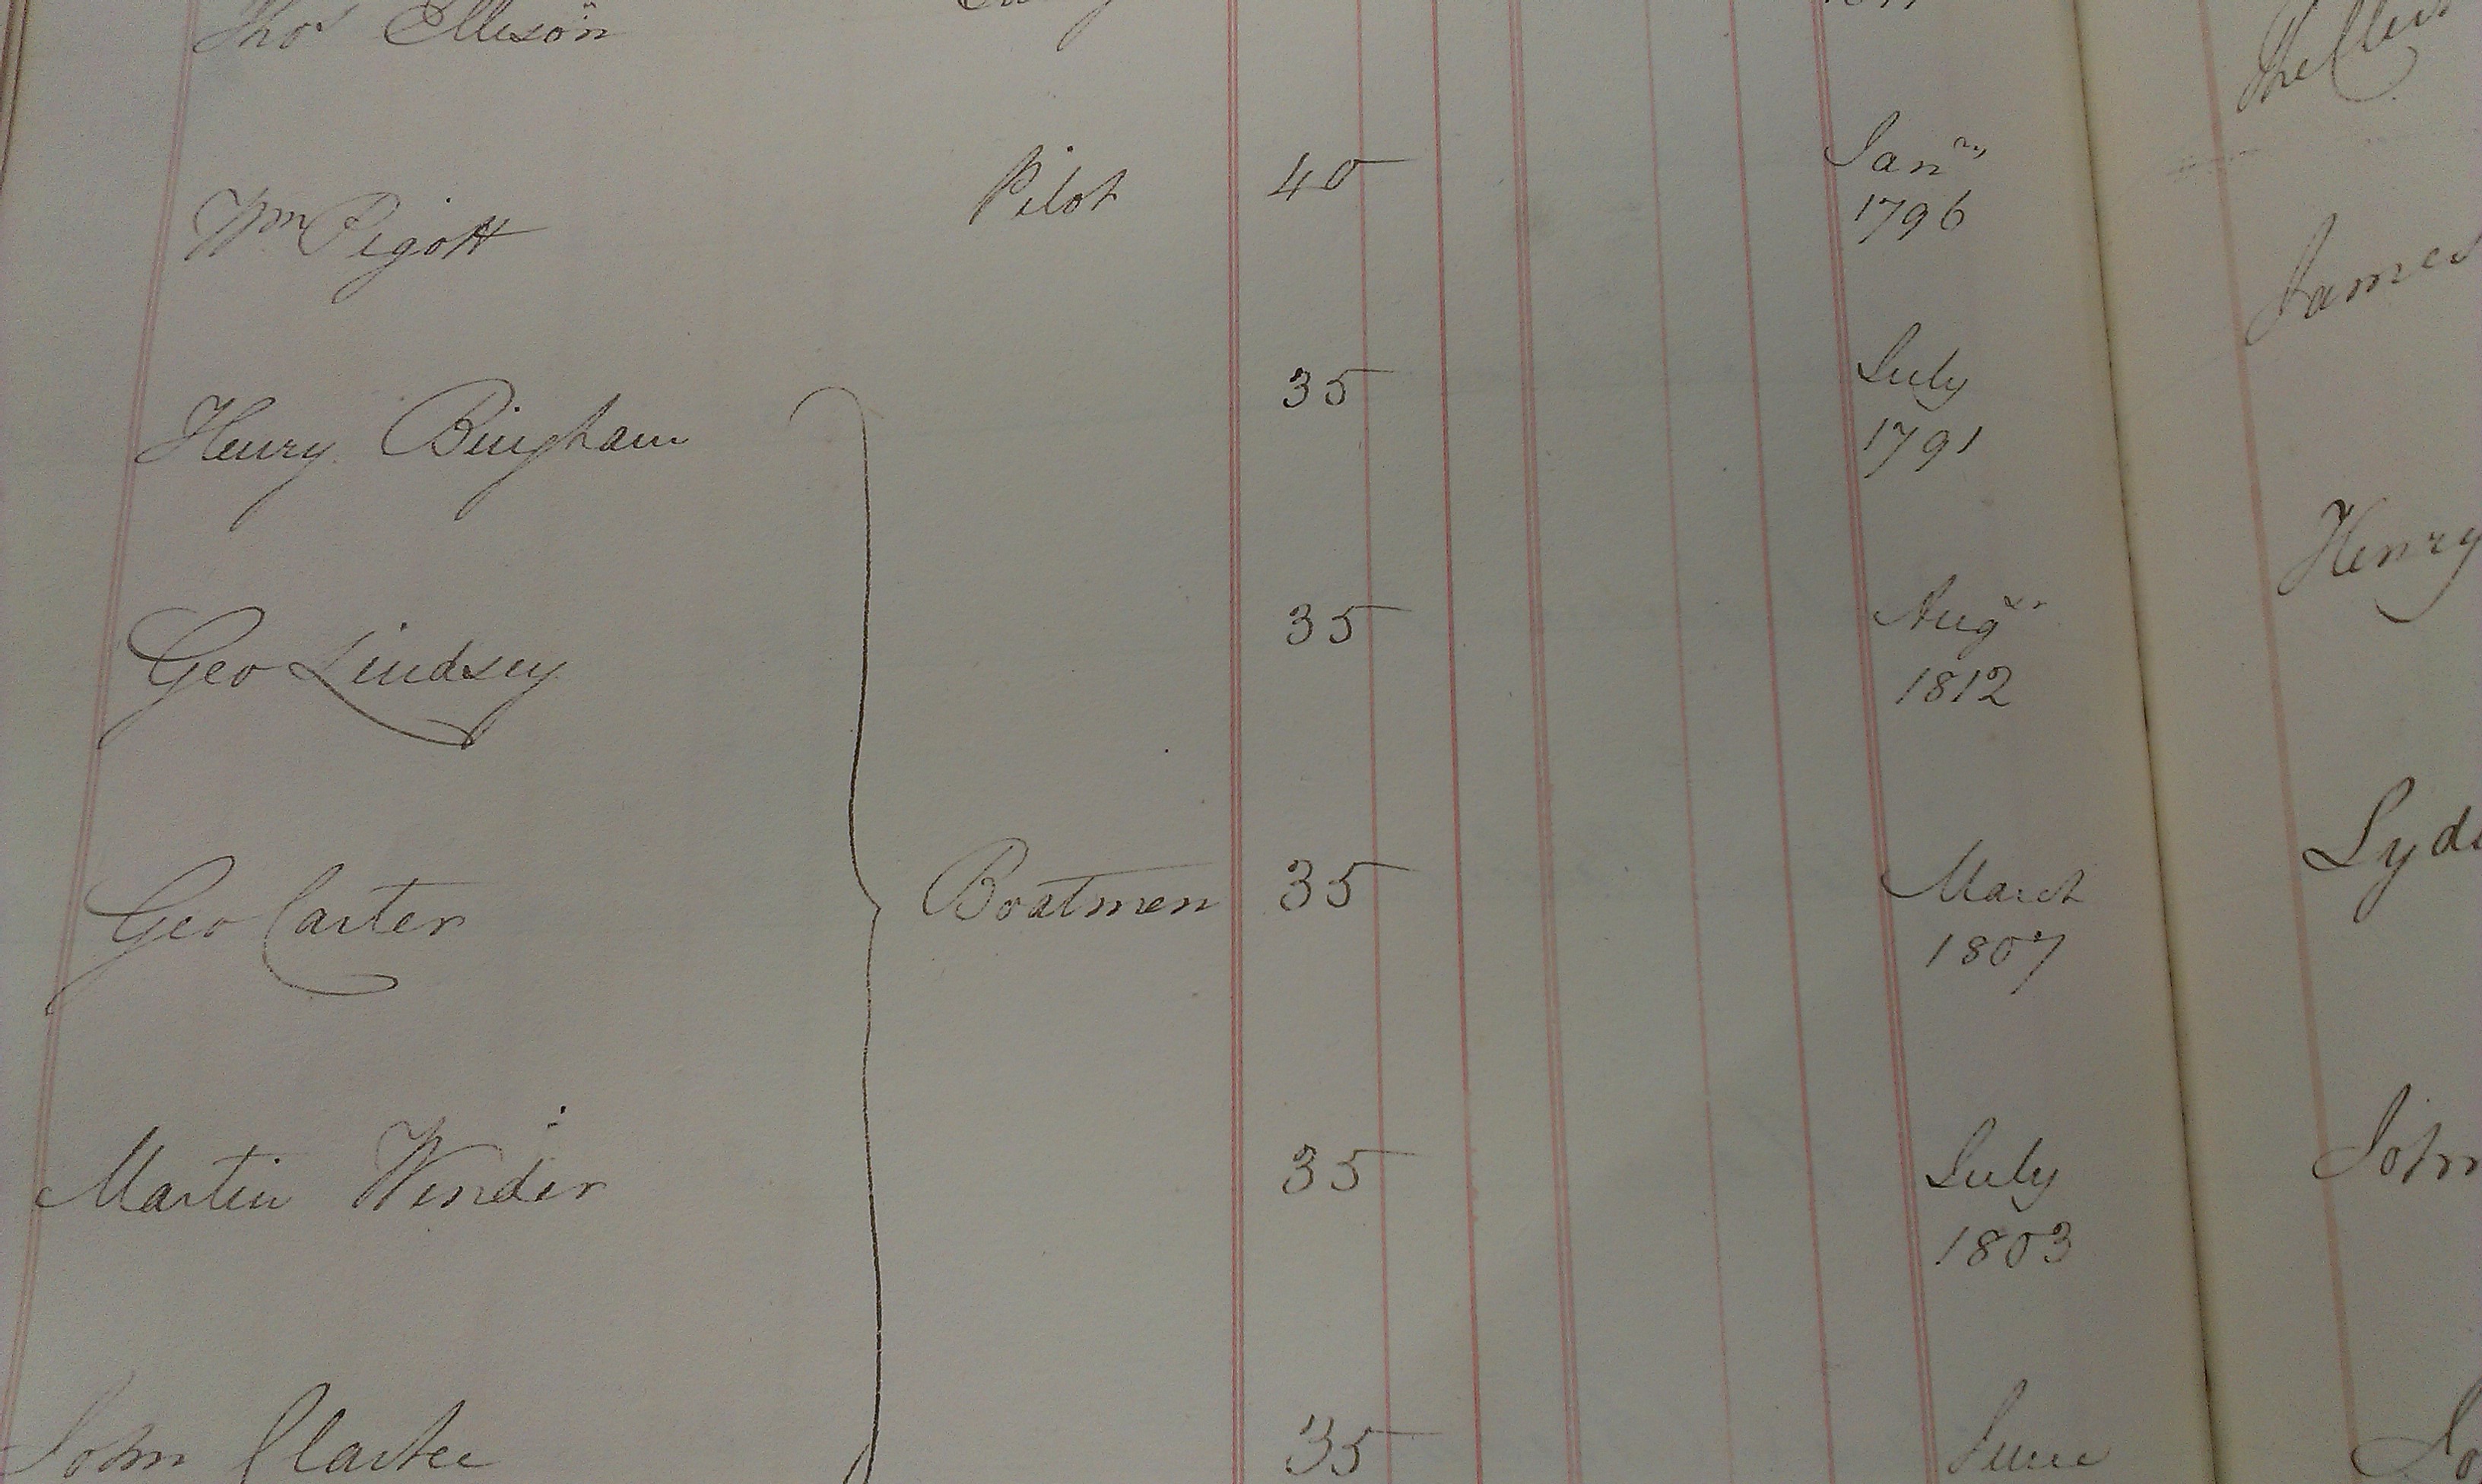 Thos Ellison
Wm Pigott Pilot 40 Janry
1796
Henry Bingham 35 July
1791
Geo Lindsey 35 Augst
1812
Geo Carter Boatmen 35 March
1807
Martin Winder 35 July
1803
John Clarke 35 June
James
Henry
John